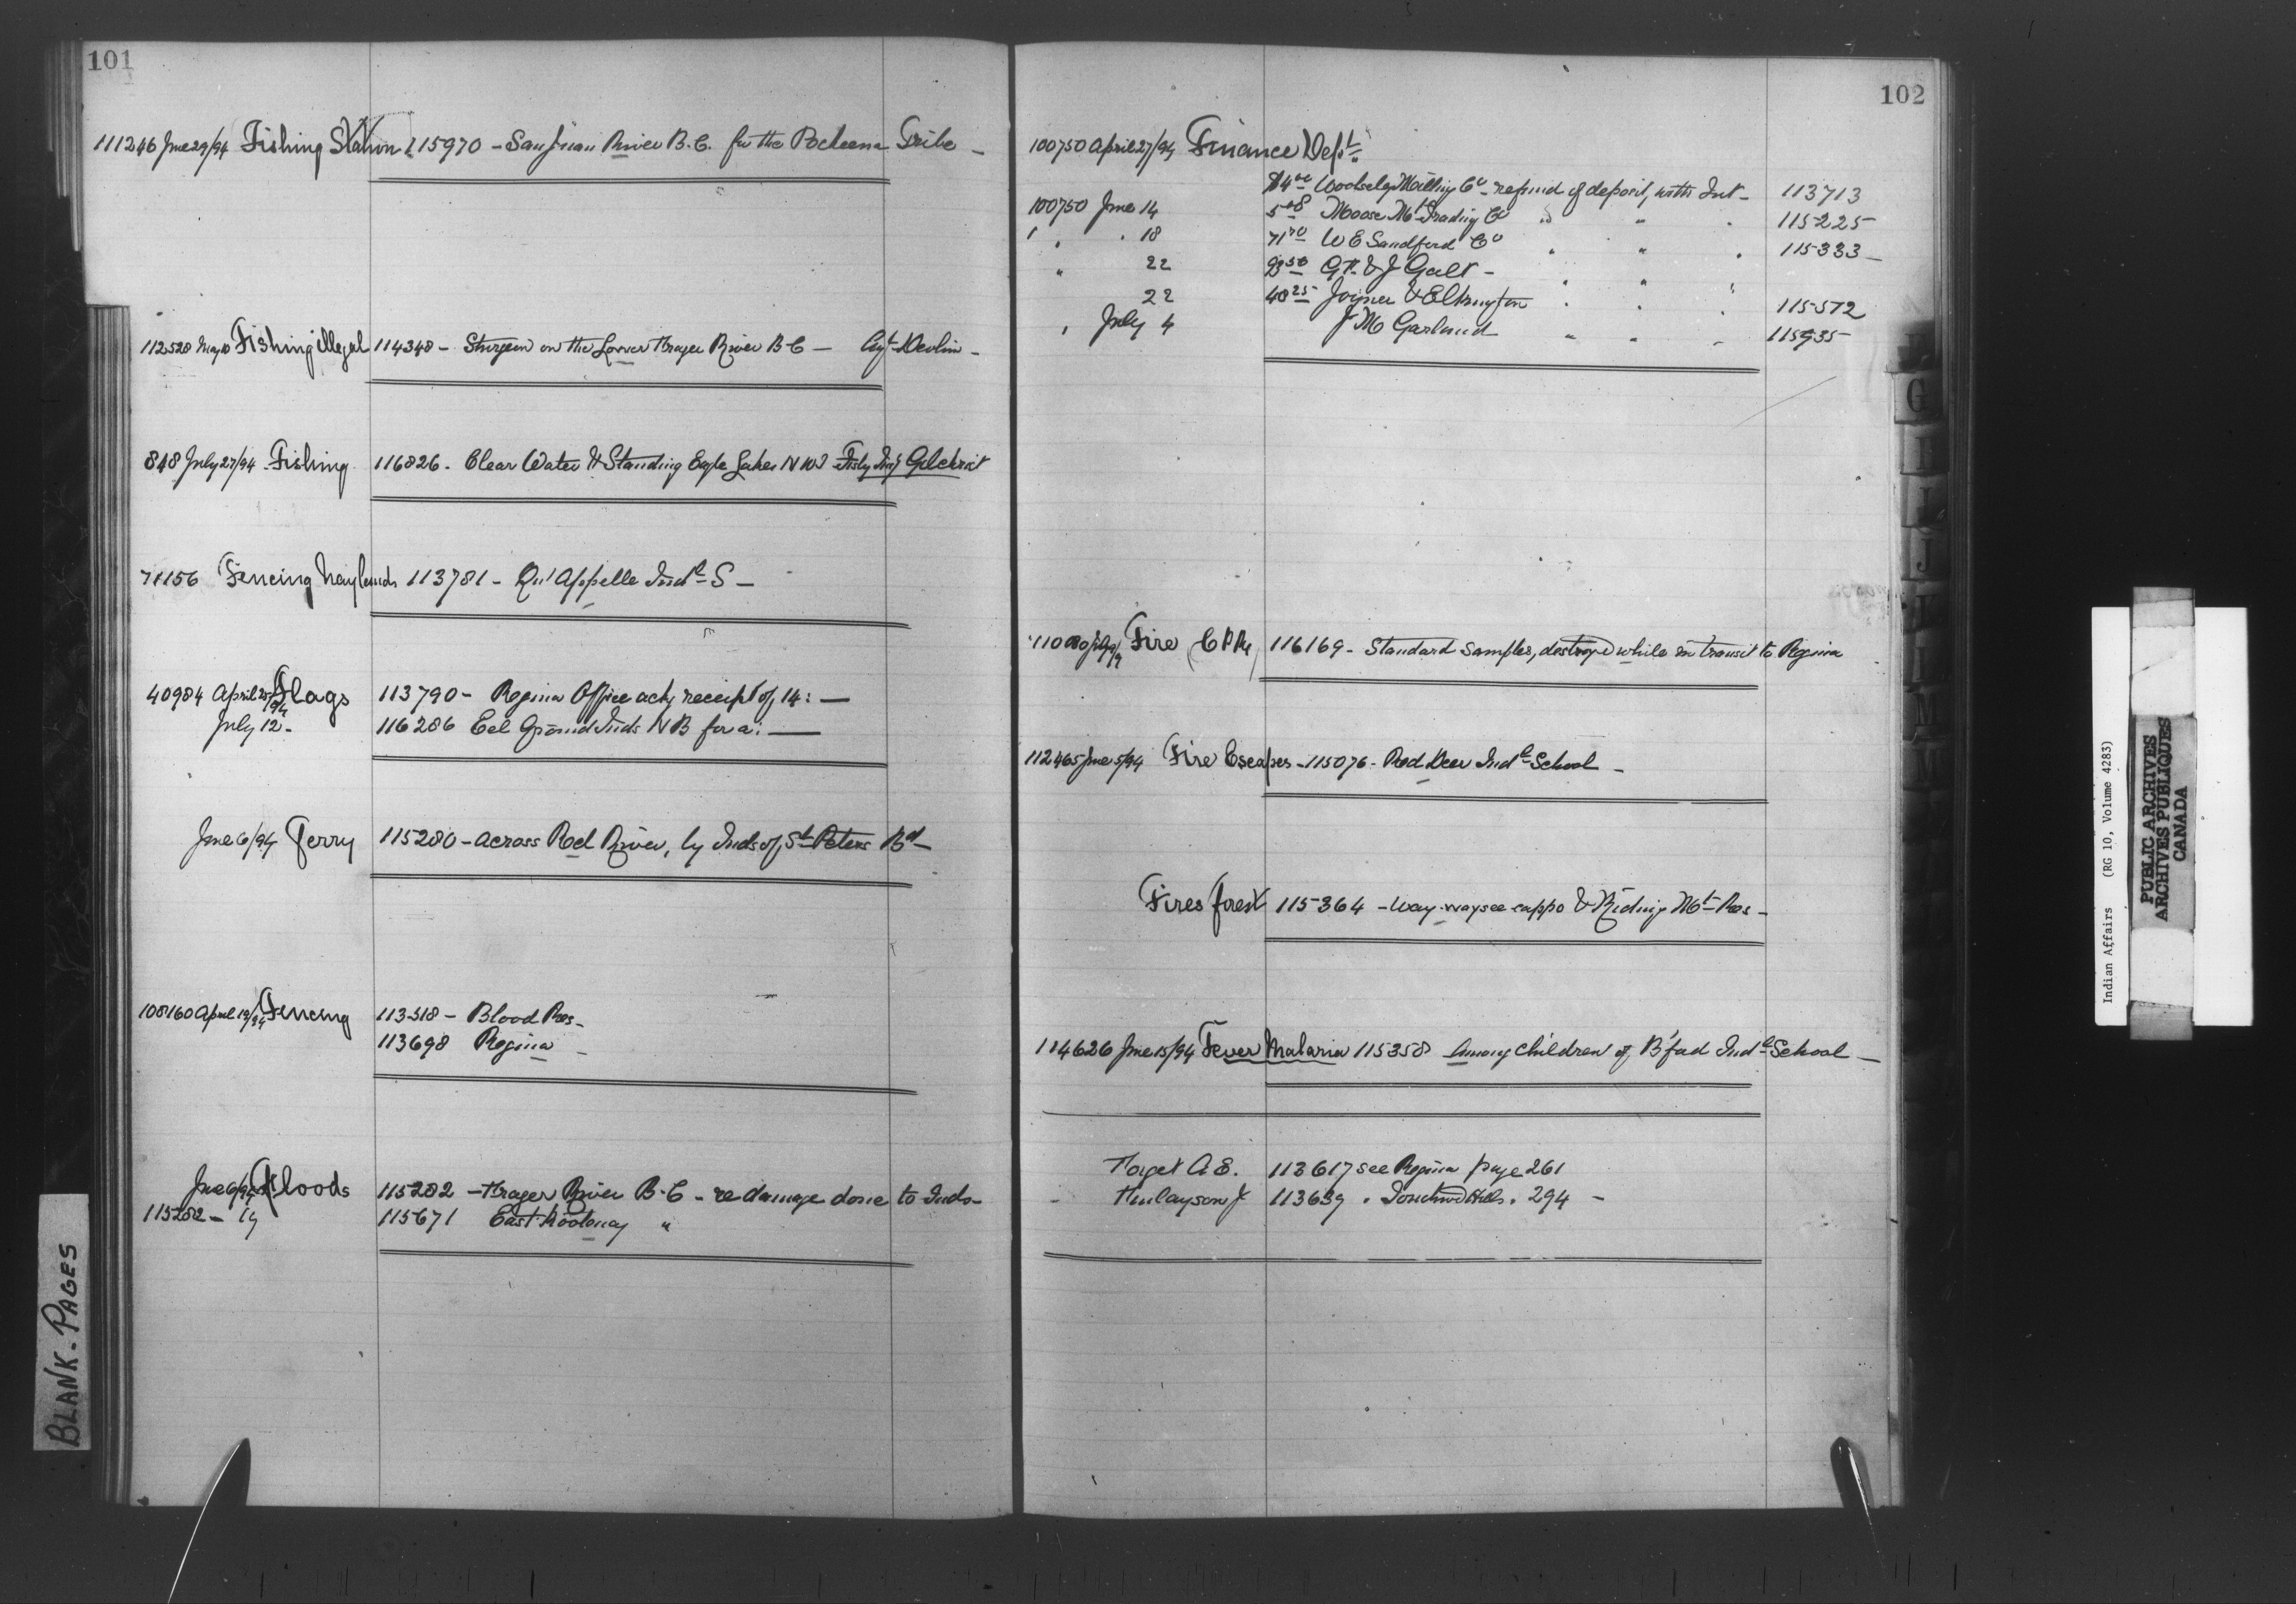 101
111246 June 29/94 Fishing Station 115970 - San Juan River B.C. for the Pacheena Tribe -
112528 May 10 Fishing illegal 114348 - Sturgeon on the Lower Frazer River B.C - Agt Devlin -
848 July 27/94 - Fishing 116826 - Clear Water & Standing Eagle Lakes N W T Fishy Insp Gilchrist
71156 Fencing hay lands 113781 - Qu'Appelle Indl S -
40984 April 25/94 Flags 113790 - Regina Office ackg receipt of 14: -
July 12 - 116286 Eel Ground Inds N B for a: -
June 6/94 Ferry 115280 - across Red River, by Inds of St Peters Bd -
108160 April 19/94 Fencing 113518 - Blood Res -
113698 Regina -
June 6/94 Floods 115282 - Frazer River B.C - re damage done to Inds -
115282 - 19 115671 East Kootenay "
BLANK - PAGES
102
100750 April 27/94 Finance Dept
$14 00 Woolseley Milling Co - refund of deposit, with Int - 113713
100750 June 14 5 08 Moose Mt Trading Co " " " 115225
" " 18 71 70 W E Sandford Co " " " 115333 -
" 22 93 50 G F & J Galt - " " "
22 40 25 Joyner & Elkington " " " 115512
" July 4 J M Garland " " " 115935
Fire C P Ry 116169 - Standard samples, destroyed while in transit to Regina
112465 June 5/94 Fire Escapes - 115076 - Red Deer Indl School -
Fires forest 115364 - Way-way see cappo & Riding Mt Res -
114626 June 15/94 Fever Malaria 115358 Among children of B'ford Indl School -
Forget A E. 113617 see Regina page 261
Finlayson J 113639 " Touchwd Hills " 294 -
G
H
I
J
K
L
M
Indian Affairs (RG 10, Volume 4283)
PUBLIC ARCHIVES
ARCHIVES PUBLIQUES
CANADA